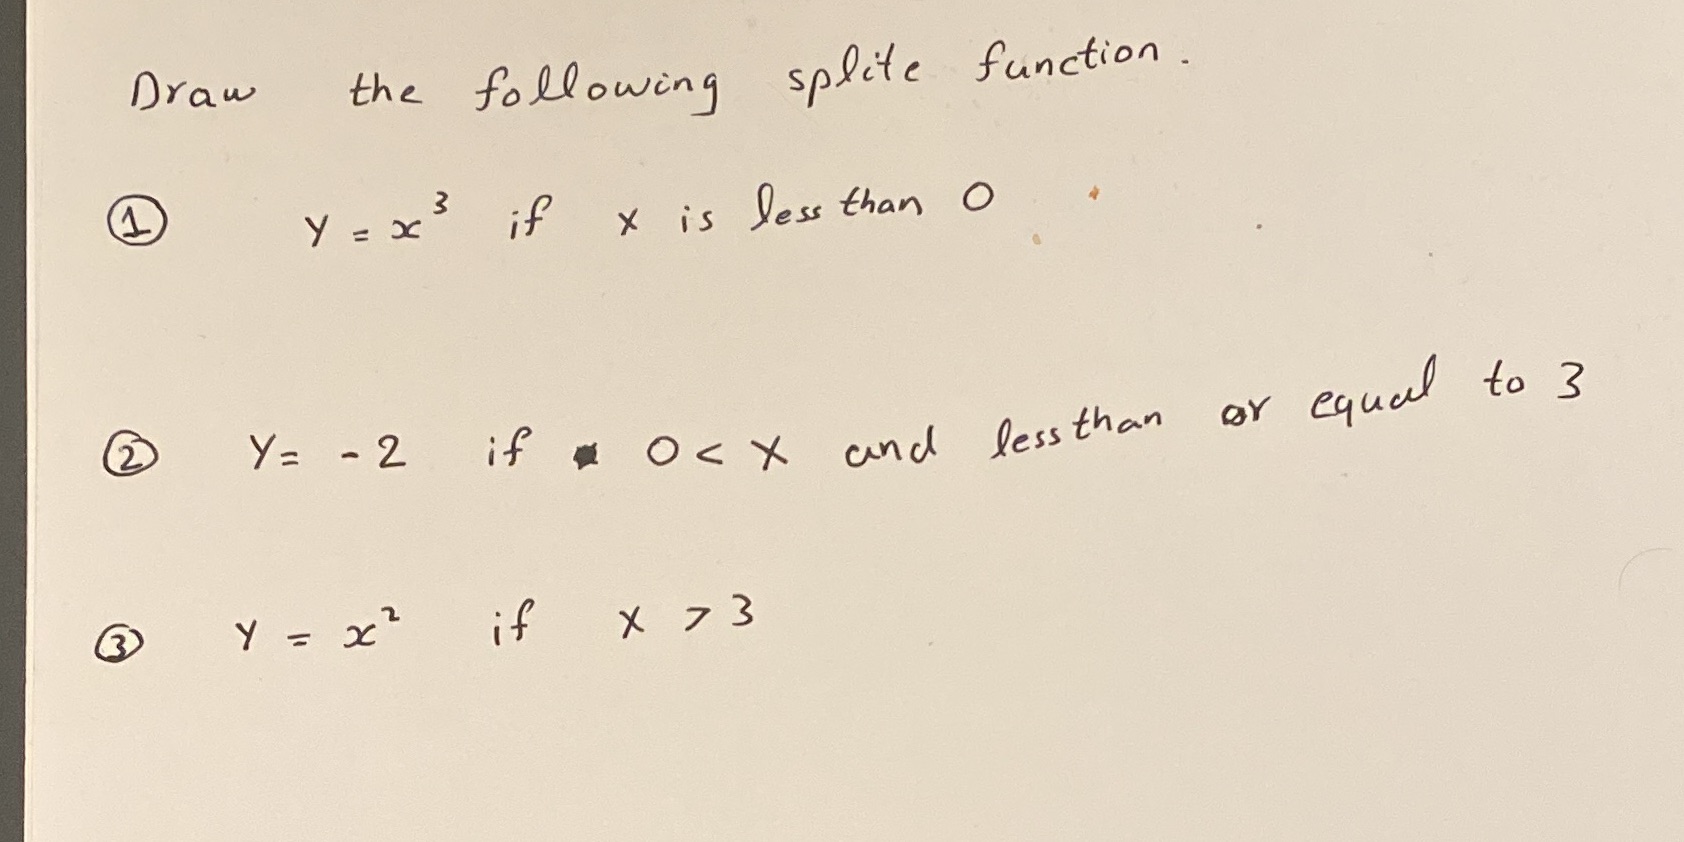 Draw the following splite function.
① Y = x³ if x is less than 0
② Y = -2 if 0 < x and less than or equal to 3
③ Y = x² if x > 3